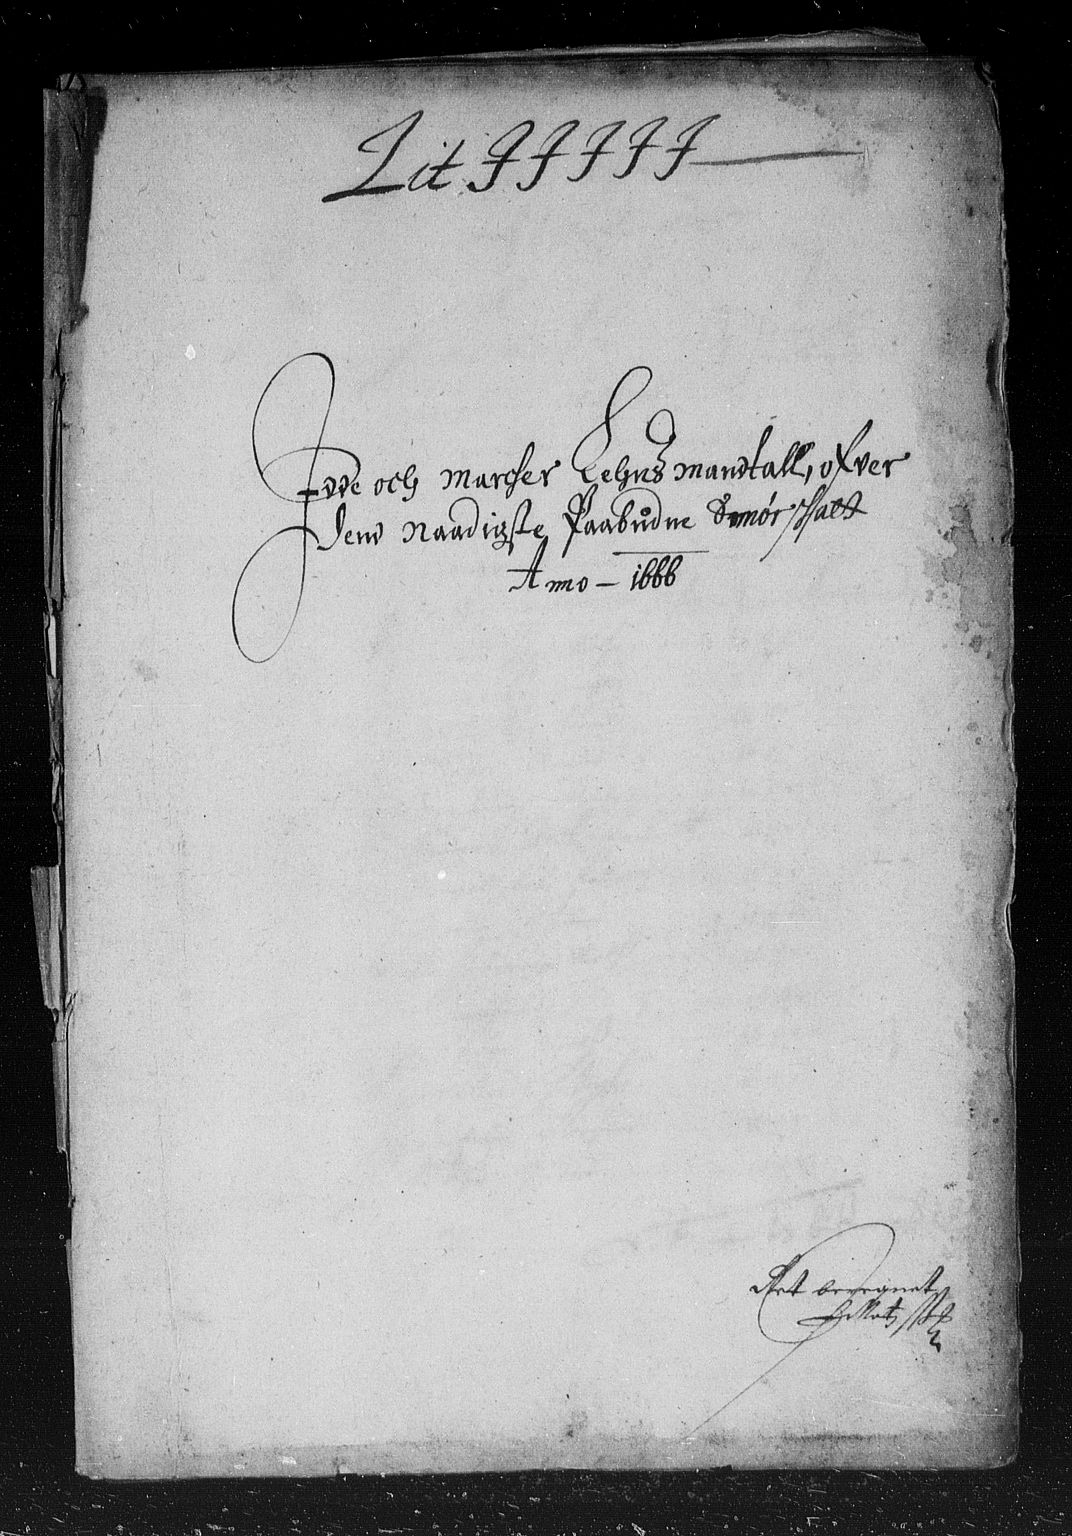 Lit JJJJJ
Jdde och Marcher Lehns Mandtall, ofver
dend Naadigste Paabudne Smør Skatt
Anno - 1666
Ret beregnet